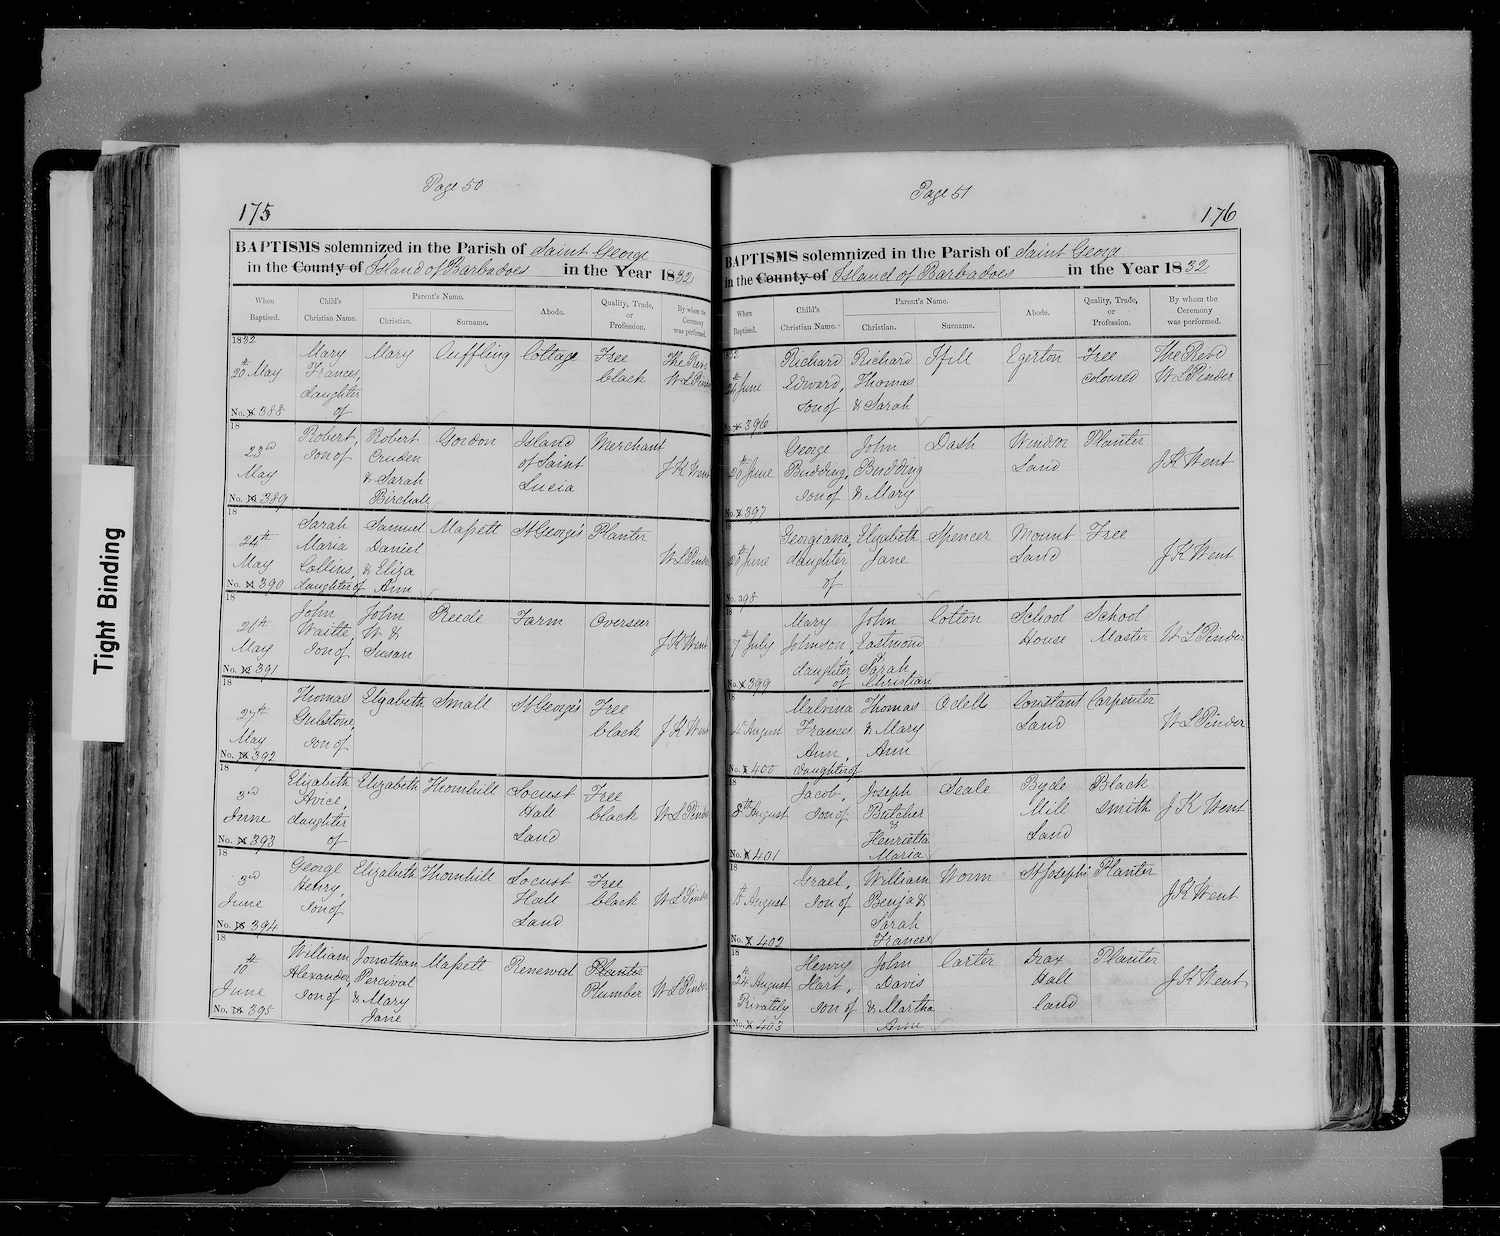 Tight Binding
Page 50
175
BAPTISMS solemnized in the Parish of Saint George
in the County of Island of Barbadoes in the Year 1832
When Baptised. Child's Christian Name. Parent's Name. Christian. Surname. Abode. Quality, Trade, or Profession. By whom the Ceremony was performed.
1832
20th May
No. 388
Mary Frances, daughter of
Mary
Cuffling
Cottage
Free black
W L Pinder
18
23rd May
No. 389
Robert, son of
Robert Cruden & Sarah Birchall
Gordon
Island of Saint Lucia
Merchant
J K Went
18
24th May
No. 390
Sarah Maria Collins, daughter of
Samuel Daniel & Eliza Ann
Massett
St George's
Planter
W L Pinder
18
26th May
No. 391
John Wastle, son of
John W & Susan
Reede
Farm
Overseer
J K Went
18
27th May
No. 392
Thomas son of
Elizabeth
Small
St George's
Free black
J K Went
18
3rd June
No. 393
Elizabeth Avice, daughter of
Elizabeth
Thornhill
Locust Hall Land
Free black
W L Pinder
18
3rd June
No. 394
George Henry, son of
Elizabeth
Thornhill
Locust Hall Land
Free black
W L Pinder
18
10th June
No. 395
William Alexander, son of
Jonathan Percival & Mary Jane
Massett
Renewal
Planter
Plumber
W L Pinder
Page 51
176
BAPTISMS solemnized in the Parish of Saint George
in the County of Island of Barbadoes in the Year 1832
When Baptised. Child's Christian Name. Parent's Name. Christian. Surname. Abode. Quality, Trade, or Profession. By whom the Ceremony was performed.
24th June
396
Richard Edward, son of
Richard Thomas & Sarah
Ifill
Egerton
Free coloured
The Revd W L Pinder
June
No. 397
George Budding, son of
John Budding & Mary
Dash
Windsor Land
Planter
J K Went
June
398
Georgiana, daughter of
Elizabeth Jane
Spencer
Mount Land
Free
J K Went
18
7th July
No. 399
Mary Johnson, daughter of
John Eastmond & Sarah Christian
Cotton
School House
School Master
W L Pinder
18
August
No. 400
Malvina Frances Ann, daughter of
Thomas & Mary Ann
Odell
Constant Land
Carpenter
W L Pinder
18
8th August
No. 401
Jacob, son of
Joseph Butcher & Henrietta Maria
Seale
Byde Mill Land
Black smith
J K Went
18
August
No. 402
Israel, son of
William Benja & Sarah Frances
Worm
St Josephs
Planter
J K Went
18
24th August
Privately
No. 403
Henry Hart, son of
John Davis & Martha Ann
Carter
Drax Hall Land
Planter
J K Went